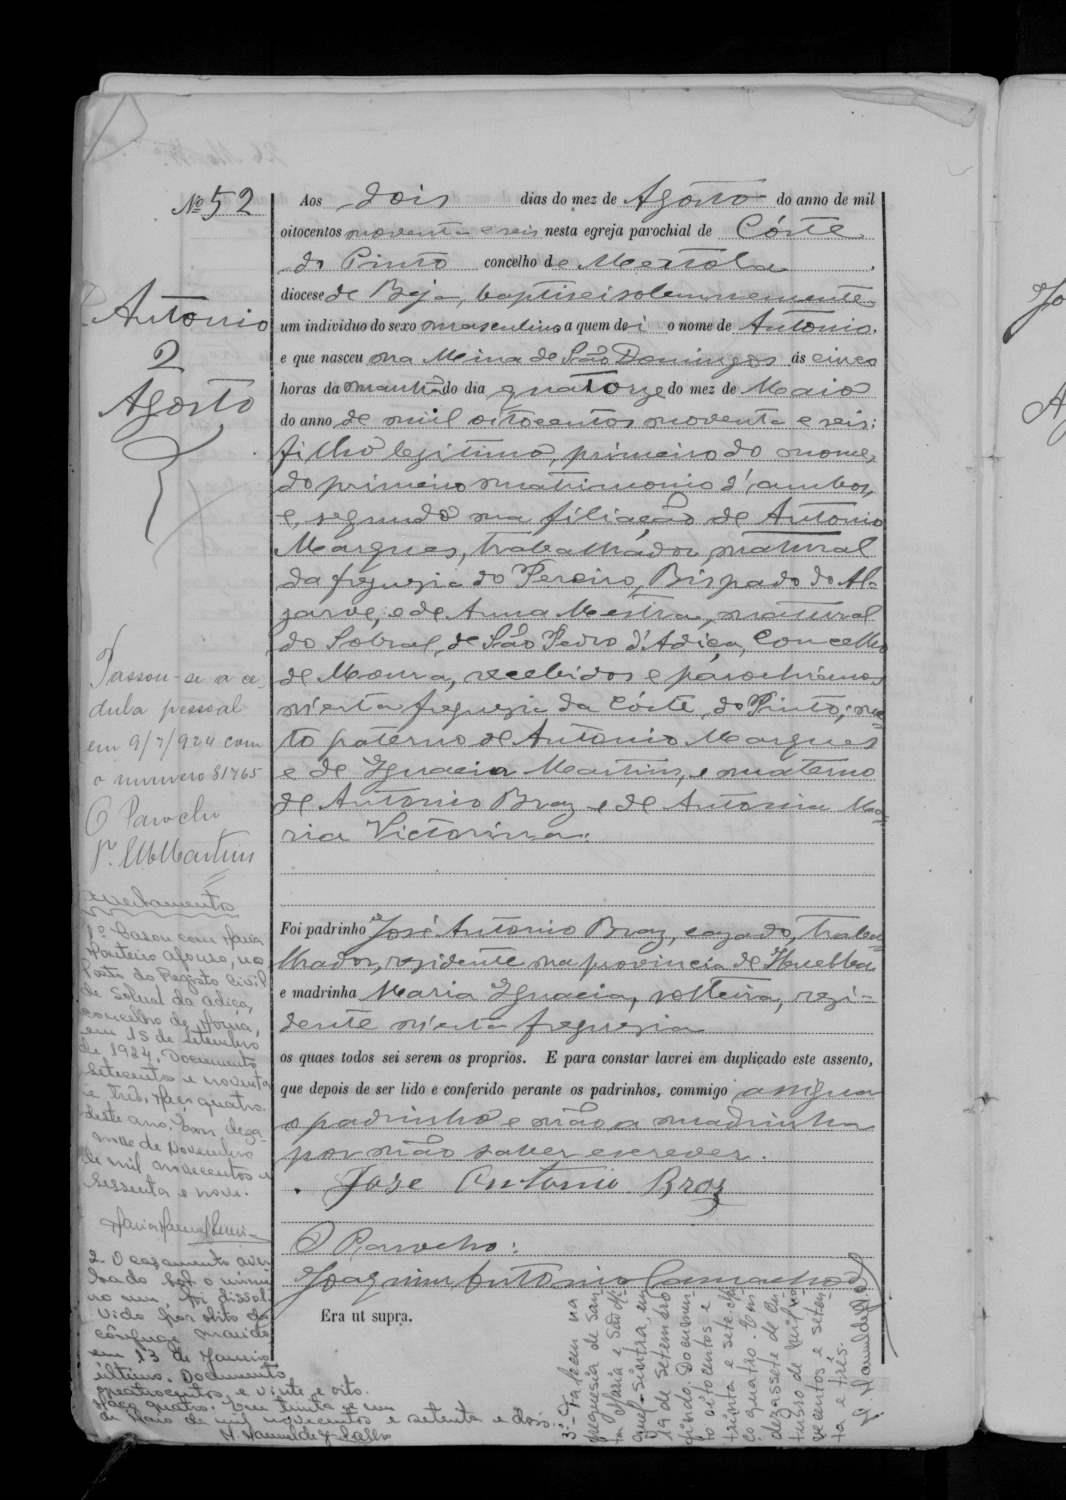 Nº 52
Antonio
2
Agosto
Aos dois dias do mez de Agosto do anno de mil
oitocentos noventa e seis nesta egreja parochial de Córte
do Pinto concelho de Mertola
diocese de Beja, baptisei solemnemente
um individuo do sexo masculino a quem dei o nome de Antonio.
e que nasceu na Mina de São Domingos ás cinco
horas da manhã do dia quatorze do mez de Maio
do anno de mil oitocentos noventa e seis:
filho legitimo, primeiro do nome,
do primeiro matrimonio d'ambos,
e segundo na filiação de Antonio
Marques, trabalhador, natural
da freguezia do Pereiro, Bispado do Al-
garve, e de Anna Mestra, natural
do Sobral, de São Pedro d'Adiça, Concelho
de Moura, recebidos e parochianos
n'esta freguezia da Córte do Pinto; ne-
to paterno de Antonio Marques
e de Ignacia Martins, e materno
de Antonio Braz e de Antonia Ma-
ria Victorina.
Foi padrinho José Antonio Braz, cazado, traba-
lhador, rezidente na provincia de Huelba
e madrinha Maria Ignacia, solteira, rezi-
dente n'esta freguezia
os quaes todos sei serem os proprios. E para constar lavrei em duplicado este assento,
que depois de ser lido e conferido perante os padrinhos, commigo assigna
o padrinho e não a madrinha
por não saber escrever.
José Antonio Braz
O Parocho:
Joaquim Antonio Camacho
Era ut supra.
Passou-se a ce-
dula pessoal
em 9/7/924 com
o numero 81765
O Parocho
P. Martins
Averbamentos
1º Casou com Maria
Monteiro Afonso, no
Posto do Registo Civil
de Sobral da Adiça,
concelho de Moura,
em 15 de setembro
de 1924. Documento
setecentos e noventa
e três, maço quatro,
deste ano. Em deza-
nove de Novembro
de mil novecentos e
sessenta e nove.
2. O casamento aver-
bado sob o nume-
ro um, foi dissol-
vido por obito do
cônjuge marido
em 13 de Janeiro
último. Documento
quatrocentos e vinte e oito.
Maço quatro. Em trinta e um
de Maio de mil novecentos e setenta e dois.
3º - Faleceu na
freguesia de San-
ta Maria e São Mi-
guel - Sintra, em
19 de setembro
findo. Documen-
to oitocentos e
trinta e sete. Ma-
ço quatro. Em
dezassete de Ou-
tubro de mil no-
vecentos e seten-
ta e três.